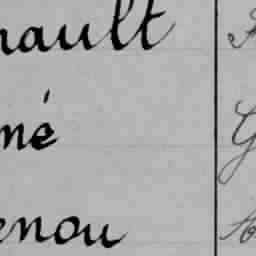 nault
né
enou